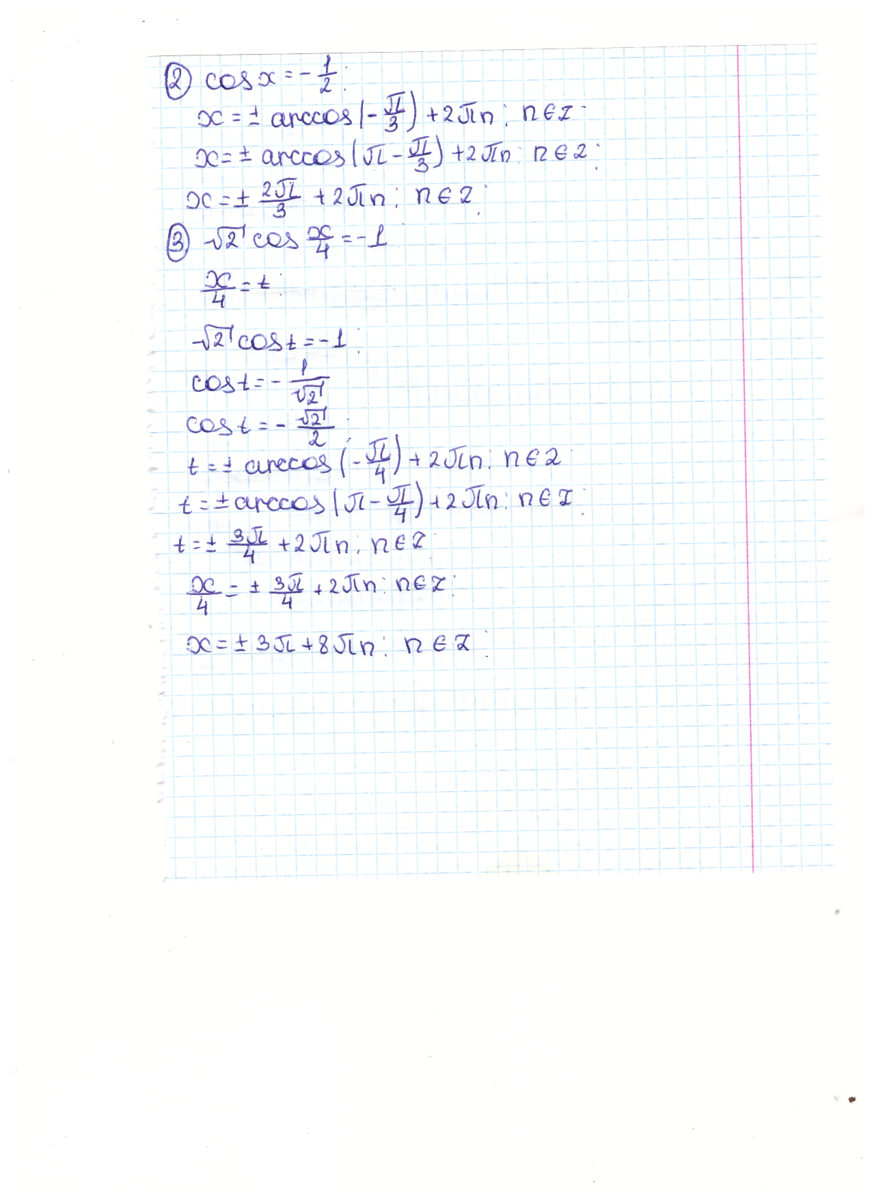 ② cos x = -1/2;
x = ± arccos(-π/3) + 2πn; n∈Z;
x = ± arccos(π - π/3) + 2πn; n∈Z;
x = ± 2π/3 + 2πn; n∈Z;
③ √2 cos x/4 = -1
x/4 = t;
√2 cos t = -1;
cos t = -1/√2
cos t = -√2/2;
t = ± arccos(-π/4) + 2πn; n∈Z
t = ± arccos(π - π/4) + 2πn; n∈Z;
t = ± 3π/4 + 2πn; n∈Z;
x/4 = ± 3π/4 + 2πn; n∈Z;
x = ± 3π + 8πn; n∈Z;